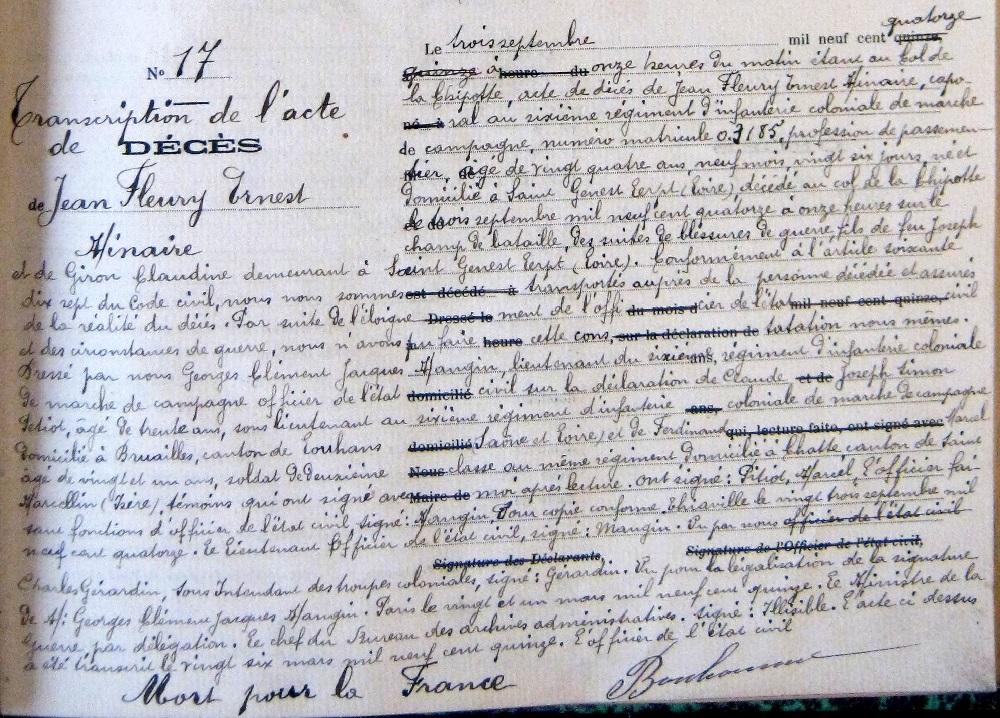 quatorze
Le trois septembre mil neuf cent quinze
N° 17
quinze à heure du onze heures du matin étant au Col de
la Chipotte, acte de décès de Jean Fleury Ernest Minaire, capo-
Transcription de l'acte
né à ral au sixième régiment d'infanterie coloniale de marche
de DÉCÈS
de campagne, numéro matricule 0.3185, profession de passemen-
tier, âgé de vingt quatre ans, neuf mois, vingt six jours, né et
de Jean Fleury Ernest
domicilié à Saint Genest Lerpt (Loire), décédé au col de la Chipotte
le trois septembre mil neuf cent quatorze à onze heures sur le
Minaire
champ de bataille, des suites de blessures de guerre, fils de feu Joseph
et de Giron Claudine demeurant à Saint Genest Lerpt (Loire). Conformément à l'article soixante
dix sept du Code civil, nous nous sommes est décédé à transportés auprès de la personne décédée et assurés
de la réalité du décès. Par suite de l'éloigne Dressé le ment de l'offi du mois d cier de l'état mil neuf cent quinze, civil
et des circonstances de guerre, nous n'avons pu faire heure cette cons, sur la déclaration de tatation nous mêmes.
Dressé par nous Georges Clément Jacques Mangin, lieutenant du sixième ans, régiment d'infanterie coloniale
de marche de campagne officier de l'état domicilié civil sur la déclaration de Claude et de Joseph Simon
Pitiot, âgé de trente ans, sous lieutenant au sixième régiment d'infanterie ans, coloniale de marche de campagne
domicilié à Bruailles, canton de Louhans domicilié (Saône et Loire) et de Ferdinand qui, lecture faite, ont signé avec Marcel
âgé de vingt et un ans, soldat de deuxième Nous classe au même régiment domicilié à Chatte canton de Saint
Marcellin (Isère), témoins qui ont signé avec Maire de moi après lecture. ont signé: Pitiot, Marcel, L'officier fai-
sant fonctions d'officier de l'état civil signé: Mangin, Pour copie conforme, Thiaville le vingt trois septembre mil
neuf cent quatorze. Le Lieutenant Officier de l'état civil, signé: Mangin. Vu par nous officier de l'état civil
Signature des Déclarants, Signature de l'Officier de l'état civil,
Charles Gérardin, Sous Intendant des troupes coloniales, signé: Gérardin. Vu pour la légalisation de la signature
de M: Georges Clément Jacques Mangin. Paris le vingt et un mars mil neuf cent quinze. Le Ministre de la
Guerre, par délégation. Le chef du Bureau des archives administratives. signé: Illisible. L'acte ci dessus
a été transcrit le vingt six mars mil neuf cent quinze. L'officier de l'état civil
Mort pour la France